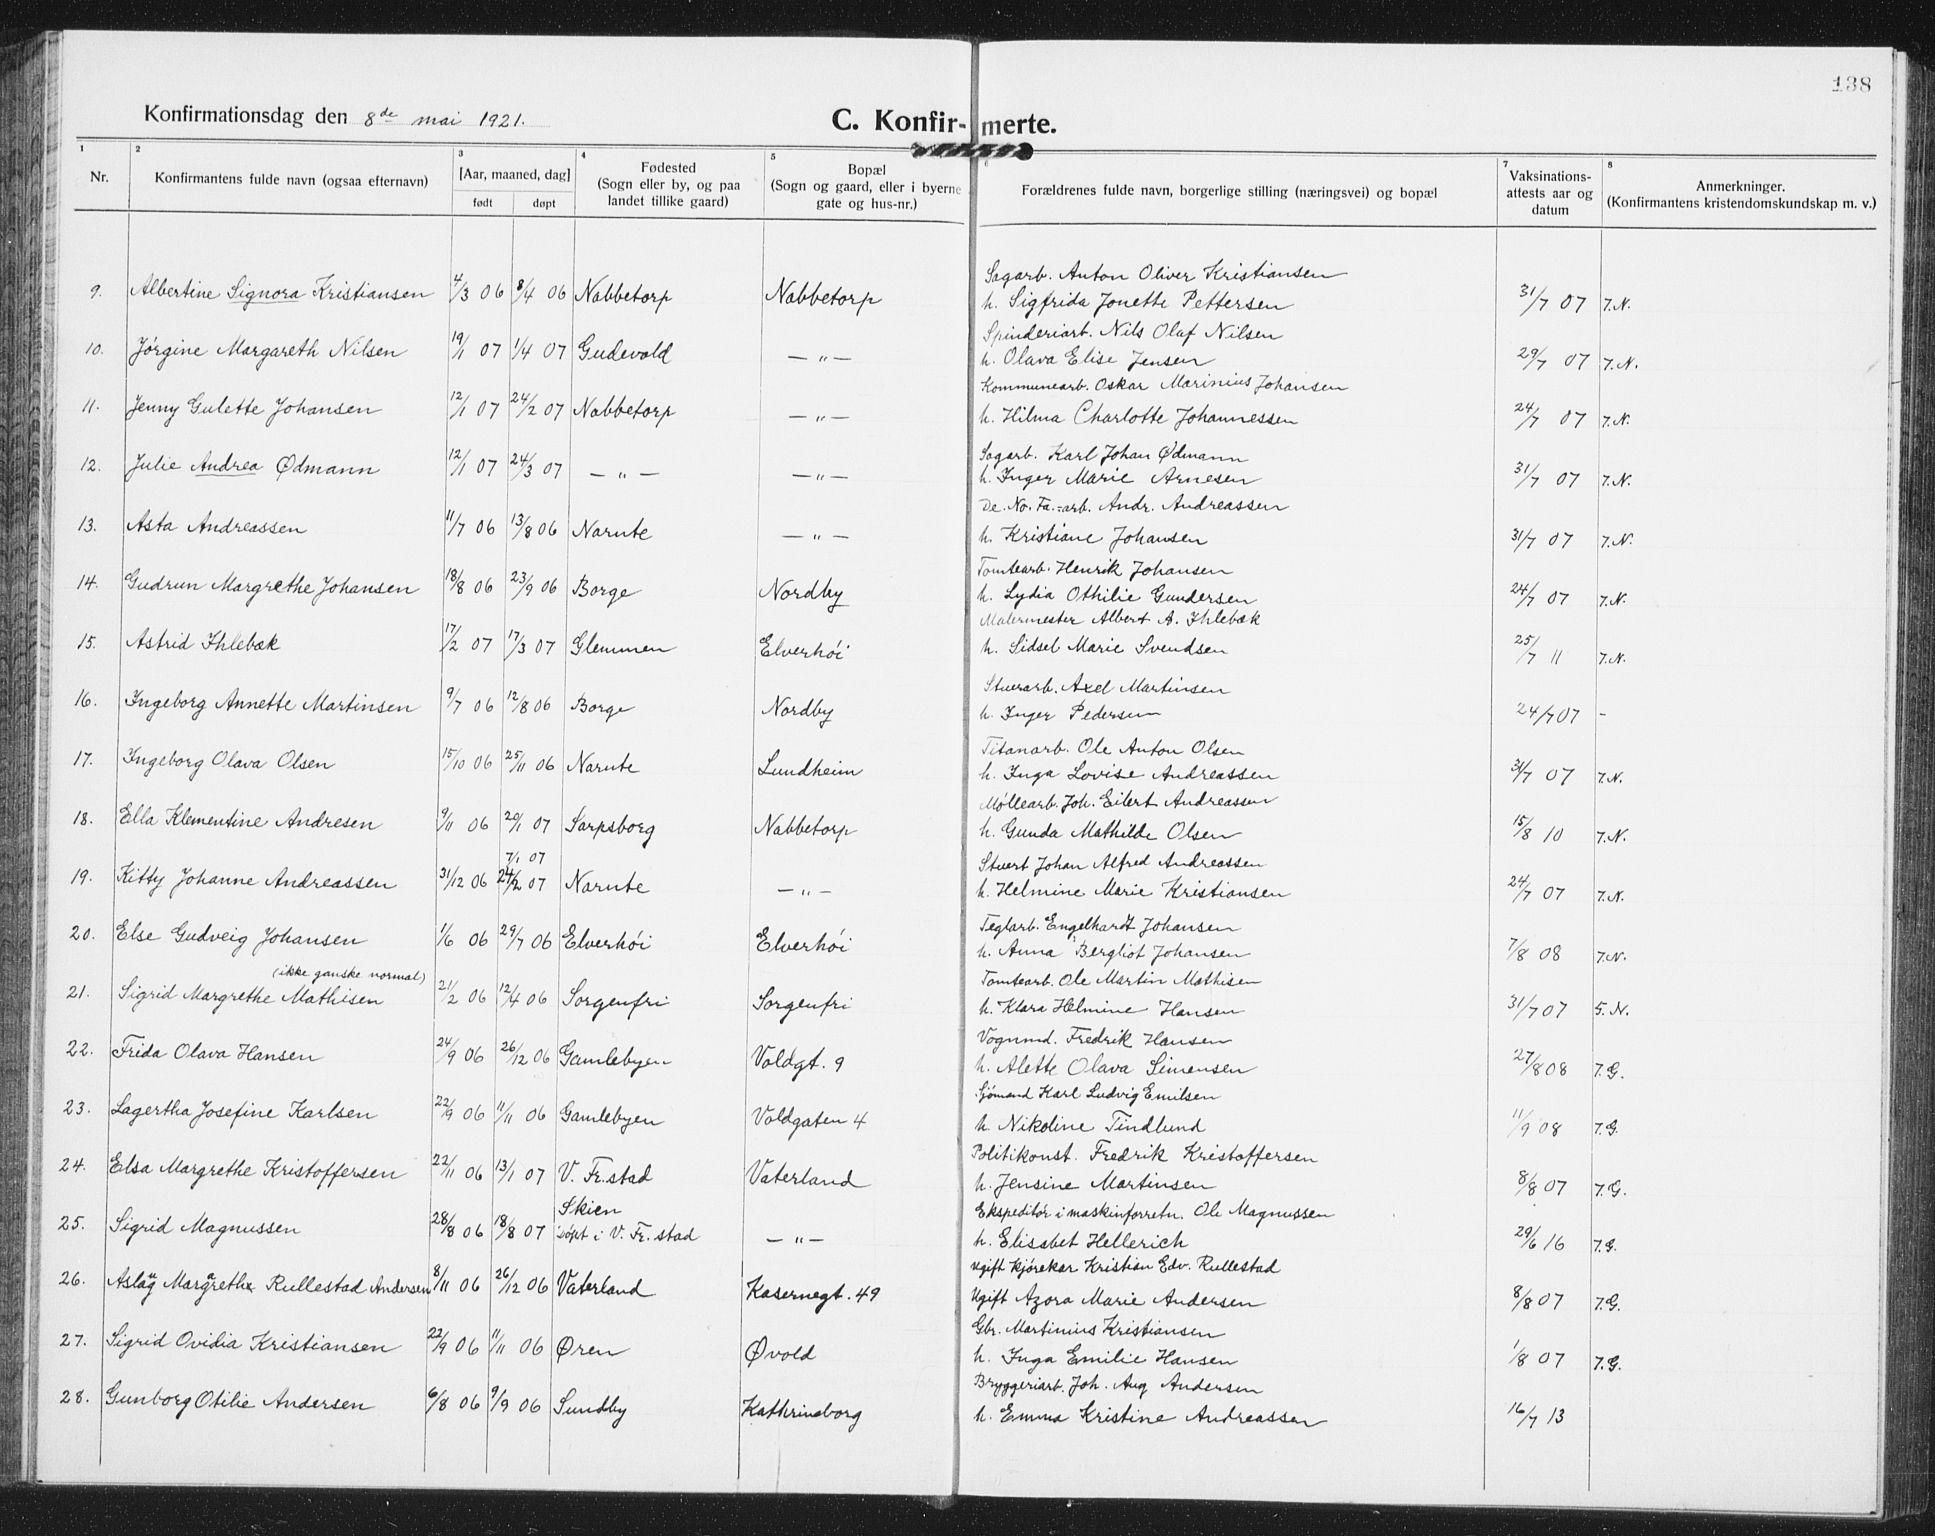 138
Konfirmationsdag den 8de mai 1921.
C. Konfir- merte.
1 2 3 4 5 6 7 8
Nr. Konfirmantens fulde navn (ogsaa efternavn) [Aar, maaned, dag] født døpt Fødested (Sogn eller by, og paa landet tillike gaard) Bopæl (Sogn og gaard, eller i byerne gate og hus-nr.) Forældrenes fulde navn, borgerlige stilling (næringsvei) og bopæl Vaksinations-attests aar og datum Anmerkninger. (Konfirmantens kristendomskundskap m. v.)
Sagarb. Anton Oliver Kristiansen
9. Albertine Signora Kristiansen 4/3 06 8/4 06 Nabbetorp Nabbetorp h. Sigfrida Jonette Pettersen 31/7 07 7.N.
Spinderiarb. Nils Olaf Nilsen
10. Jørgine Margareth Nilsen 19/1 07 1/4 07 Gudevold — " — h. Olava Elise Jensen 29/7 07 7.N.
Kommunearb. Oskar Marinius Johansen
11. Jenny Gulette Johansen 12/1 07 24/2 07 Nabbetorp — " — h. Hilma Charlotte Johannessen 24/7 07 7.N.
Sagarb. Karl Johan Ødmann
12. Julie Andrea Ødmann 12/1 07 24/3 07 — " — — " — h. Inger Marie Arnesen 31/7 07 7.N.
De. No. Fa.-arb. Andr. Andreassen
13. Asta Andreassen 11/7 06 13/8 06 Narnte — " — h. Kristiane Johansen 31/7 07 7.N.
Tomtearb. Henrik Johansen
14. Gudrun Margrethe Johansen 18/8 06 23/9 06 Borge Nordby h. Lydia Othilie Gundersen 24/7 07 7.N.
Malermester Albert A. Ihlebæk
15. Astrid Ihlebæk 17/2 07 17/3 07 Glemmen Elverhöi h. Sidsel Marie Svendsen 25/7 11 7.N.
Stuerarb. Axel Martinsen
16. Ingeborg Annette Martinsen 9/7 06 12/8 06 Borge Nordby h. Inger Pedersen 24/7 07 -
Titanarb. Ole Anton Olsen
17. Ingeborg Olava Olsen 15/10 06 25/11 06 Narnte Lundheim h. Inga Lovise Andreassen 31/7 07 7.N.
Møllearb. Joh. Eilert Andreassen
18. Ella Klementine Andresen 9/11 06 20/1 07 Sarpsborg Nabbetorp h. Gunda Mathilde Olsen 15/8 10 7.N.
7/1 07 Stuert Johan Alfred Andreassen
19. Kitty Johanne Andreassen 31/12 06 24/2 07 Narnte — " — h. Helmine Marie Kristiansen 24/7 07 7.N.
Teglarb. Engelhardt Johansen
20. Else Gudveig Johansen 1/6 06 29/7 06 Elverhöi Elverhöi h. Anna Bergliot Johansen 7/8 08 7.N.
(ikke ganske normal) Tomtearb. Ole Martin Mathisen
21. Sigrid Margrethe Mathisen 21/2 06 12/4 06 Sorgenfri Sorgenfri h. Klara Helmine Hansen 31/7 07 5.N.
Vognmd. Fredrik Hansen
22. Frida Olava Hansen 24/9 06 26/12 06 Gamlebyen Voldgt. 9 h. Alette Olava Simensen 27/8 08 7.G.
Sjömand Karl Ludvig Emilsen
23. Lagertha Josefine Karlsen 22/9 06 11/11 06 Gamlebyen Voldgaten 4 h. Nikoline Tindlund 11/9 08 7.G.
Politikonst. Fredrik Kristoffersen
24. Elsa Margrethe Kristoffersen 22/11 06 13/1 07 V. Fr.stad Vaterland h. Jensine Martinsen 8/8 07 7.G.
Skien Ekspeditör i maskinforretn. Ole Magnussen
25. Sigrid Magnussen 28/8 06 18/8 07 döpt i V. Fr.stad — " — h. Elisabet Hellerich 29/6 16 7.G.
Ugift kjørekar Kristian Edv. Rullestad
26. Aslaug Margareth Rullestad Andersen 8/11 06 26/12 06 Vaterland Kasernegt. 49 Ugift Azora Marie Andersen 8/8 07 7.G.
Gbr. Martinius Kristiansen
27. Sigrid Ovidia Kristiansen 22/9 06 11/11 06 Øren Øvold h. Inga Emilie Hansen 1/8 07 7.G.
Bryggeriarb. Joh. Aug Andersen
28. Gunborg Otilie Andersen 6/8 06 9/9 06 Sundby Kathrineborg h. Emma Kristine Andreassen 16/7 13